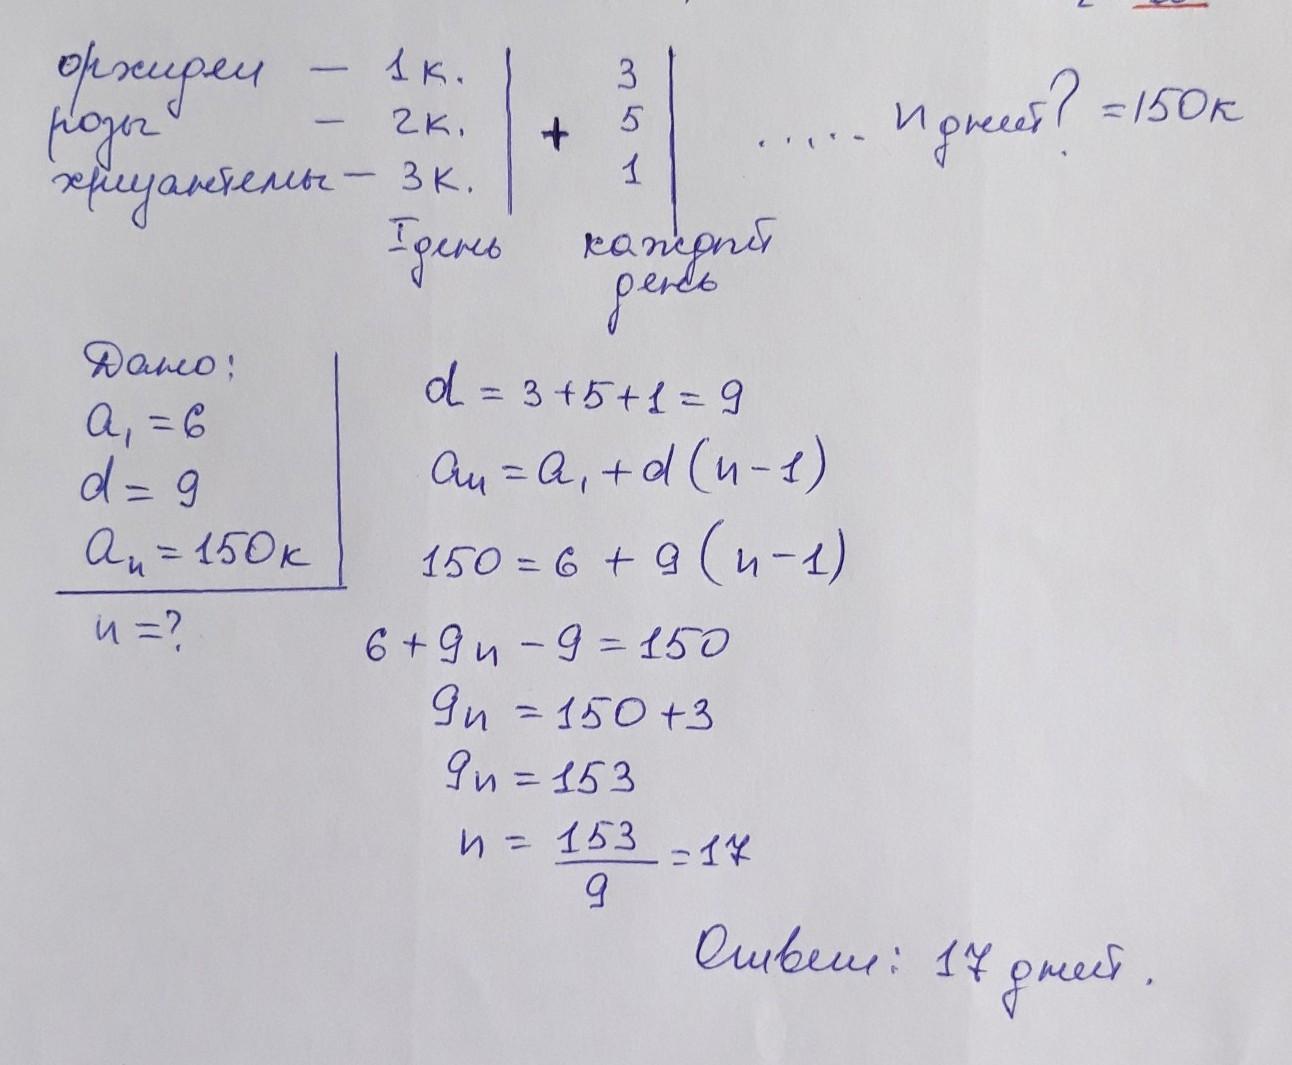 орхидеи – 1к. | + 3 | ..... n дней? = 150к
розы – 2к. | 5
хризантемы – 3к. | 1
I день каждый
день
Дано:
a₁ = 6
d = 9
aₙ = 150к
n = ?
d = 3+5+1 = 9
aₙ = a₁ + d(n-1)
150 = 6 + 9(n-1)
6 + 9n - 9 = 150
9n = 150+3
9n = 153
n = 153/9 = 17
Ответ: 17 дней.